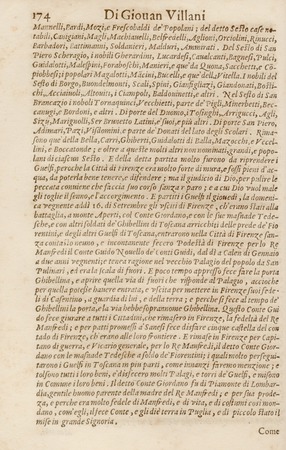 174 Di Giouan Villani
Mannelli, Bardi, Mozi, e Frescobaldi de' Popolani; del detto Sesto case no-
tabili, Canigiani, Magli, Machiauelli, Belfredelli, Agliori, Orciolini, Rinucci,
Barbadori, Battimanni, Soldanieri, Malduri, Ammirati. Del Sesto di San
Piero Scheraggio, i nobili Gherardini, Lucardesi, Caualcanti, Bagnesi, Pulci,
Guidalotti, Malespini, Foraboschi, Manieri, e que' da Quona, Sacchetti, e Co-
piobbesi; i popolari Magalotti, Mācini, Bucelli, e que' della Vitella. I nobili del
Sesto di Borgo, Bondelmonti, Scali, Spini, Gianfigliazzi, Giandonati, Bosti-
chi, Acciaiuoli, Altouiti, Ciampoli, Baldouinetti, e altri. Nel Sesto di San
Brancazio i nobili Tornaquinci, Vecchietti, parte de' Pigli, Minerbetti, Bec-
canugi, e Bordoni, e altri. Di porte del Duomo, i Tosinghi, Arrigucci, Agli,
Sizij, Marignolli, Ser Brunetto Latini, e suoi, e più altri. Di porte San Piero,
Adimari, Pazi, Visdomini. e parte de' Donati del lato degli Scolari. Rima-
sono que' della Bella, Carri, Ghiberti, Guidalotti di Balla, Mazzochi, e Vccel-
lini, e Boccatonde; e oltre a quelle molti altri non nominati, grandi, e popo-
lani di ciascun Sesto. E della detta partita molto furono da riprendere i
Guelfi, perche la Città di Firenze era molto forte di mura, e fossi pieni d'ac-
qua, da poterla bene tenere, e difendere; ma il giudicio di Dio, per pulire le
peccata conuiene che faccia suo corso sanza riparo; e a cui Dio vuol male
gli toglie il senno, e l'accorgimento. E partiti i Guelfi il giouedì, la domeni-
ca vegnente adì 16. di Settembre gli vsciti di Firenze, ch'erano stati alla
battaglia, a monte Aperti, col Conte Giordano, e con le sue masnade Tede-
sche, e con altri soldati de' Ghibellini di Toscana arricchiti delle prede de' Fio
rentini, e degli altri Guelfi di Toscana, entrarono nella Città di Firenze san-
za contasto nenno, e incontanente fecero Podestà di Firenze per lo Re
Manfredi il Conte Guido Nouello de' conti Guidi, dal dì a Calen di Gennaio
a due anni vegnente; e tenea ragione nel vecchio Palagio del popolo da San
Pulinari, ed era la scala di fuori. E poco tempo appresso fece fare la porta
Ghibellina, e aprire quella via di fuori che risponde al Palagio, accioche
per quella potesse hauere entrata, e vscita per mettere in Firenze i suoi fede-
li di Casentino, a guardia di lui, e della terra; e perche si fece al tempo de'
Ghibellini la porta, e la via hebbe soprannome Ghibellina. Questo Conte Gui
do fece giurare a tutti i Cittadini, che rimasono in Firenze, la fedeltà del Re
Manfredi; e per patti promessi a' Sanesi fece disfare cinque castella del con
tado di Firenze, ch'erano alle loro frontiere. E rimase in Firenze per Capi-
tano di guerra, e Vicario generale, per lo Re Manfredi, il detto Conte Gior-
dano con le masnade Tedesche a soldo de' Fiorentini; i quali molto persegui-
tarono i Guelfi in Toscana in più parti, come innanzi faremo menzione; e
tolsono tutti i loro beni, e disfecero molti Palagi, e torri de' Guelfi, e misono
in Comune i loro beni. Il detto Conte Giordano fu di Piamonte di Lombar-
dia, gentile huomo parente della madre del Re Manfredi; e per sua prodez-
za, e perche era molto fedele di Manfredi, e di vita, e di costumi così mon-
dano, com'egli, il fece Conte, e gli diè terra in Puglia, e di piccolo stato il
mise in grande Signoria.
Come